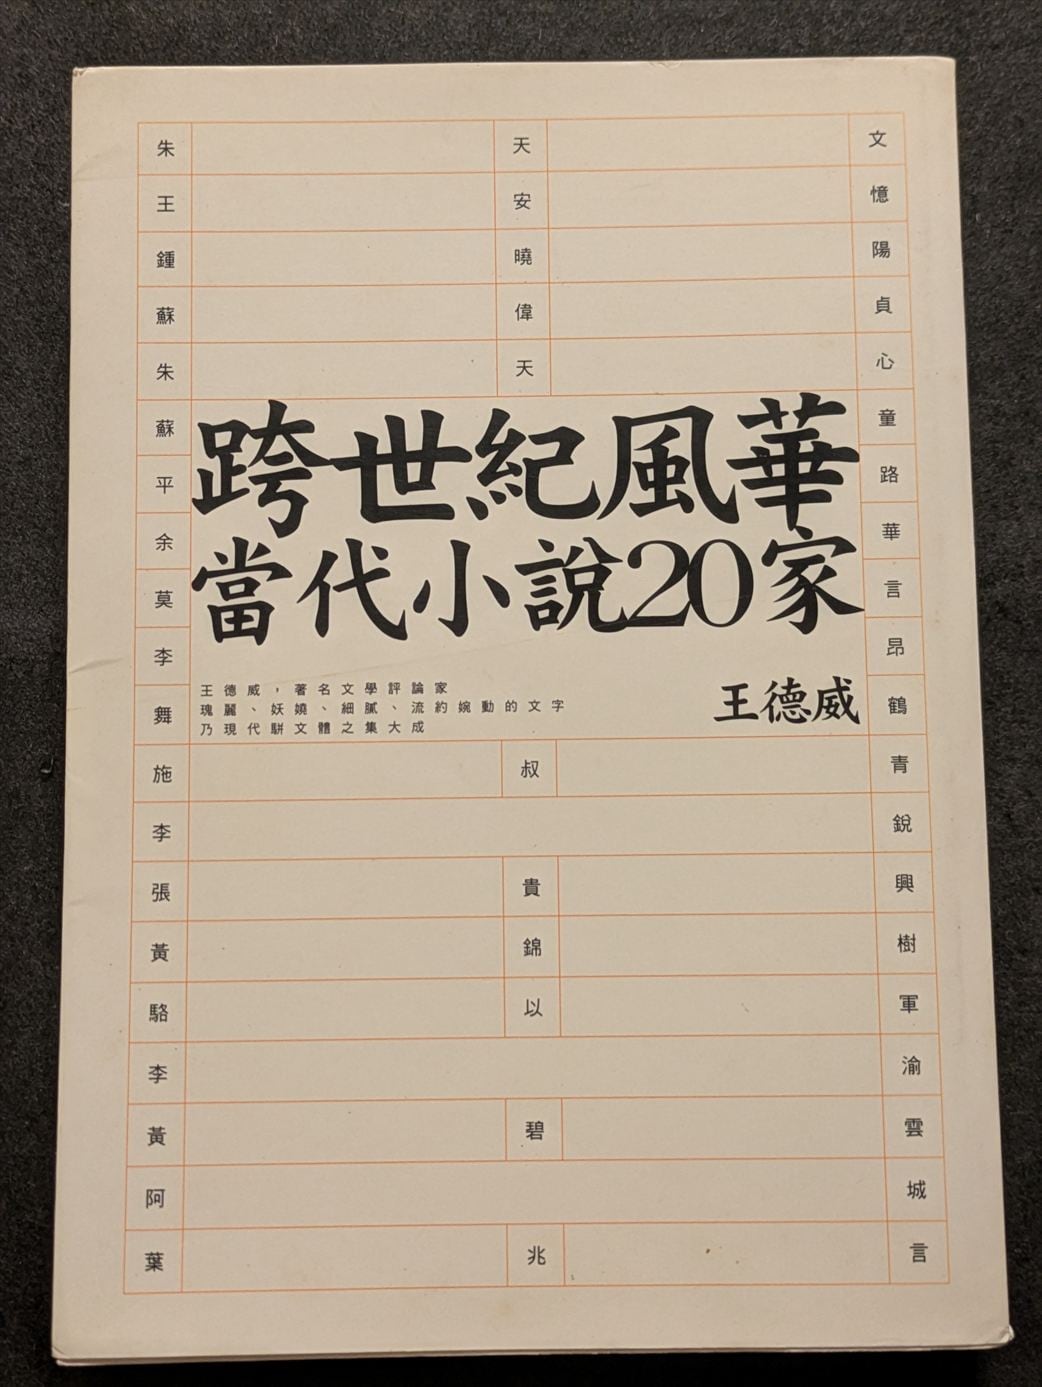 朱 天 文
王 安 憶
鍾 曉 陽
蘇 偉 貞
朱 天 心
蘇 童
平 路
余 華
莫 言
李 昂
舞 鶴
跨世紀風華
當代小說20家
王德威，著名文學評論家
瑰麗、妖嬈、細膩、流約婉動的文字
乃現代駢文體之集大成
王德威
施 叔 青
李 銳
張 貴 興
黃 錦 樹
駱 以 軍
李 渝
黃 碧 雲
阿 城
葉 兆 言